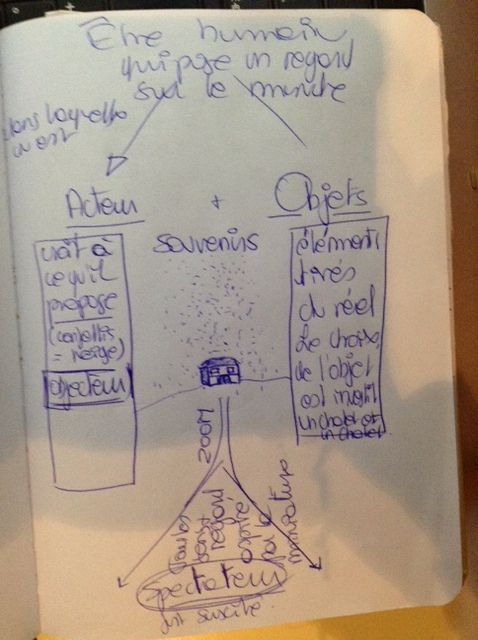 Être humain
qui pose un regard
sur le monde
dans laquelle
on est
Acteur + Objets
croit à
ce qu'il
propose
(confettis
= neige)
objecteur
souvenirs
éléments
tirés
du réel
Le choix
de l'objet
est motif
un chalet est
un chalet
ZOOM
regard
par la
miniature
Spectateur